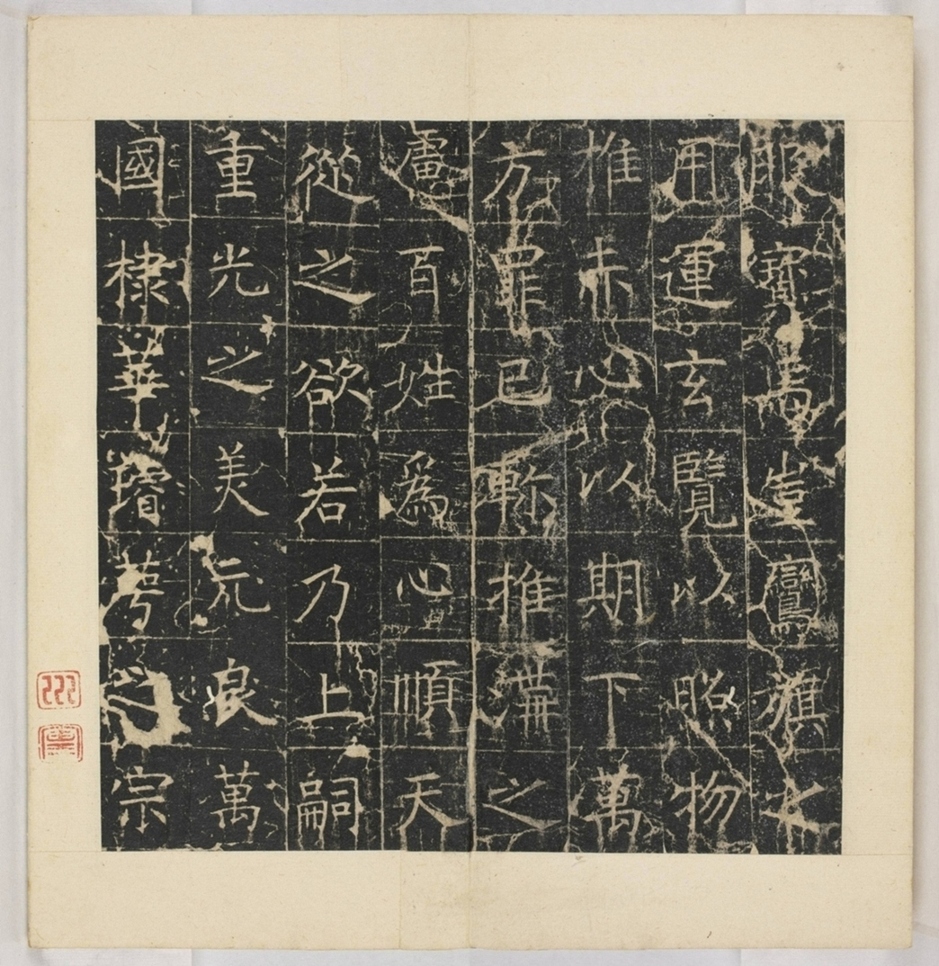 服寶馬豈鸞旗
運玄覽以昭物
推赤心以期下萬
方罪己軫推溝之
慮百姓爲心順天
從之欲若乃上嗣
重光之美元良萬
國棣華增萼之宗